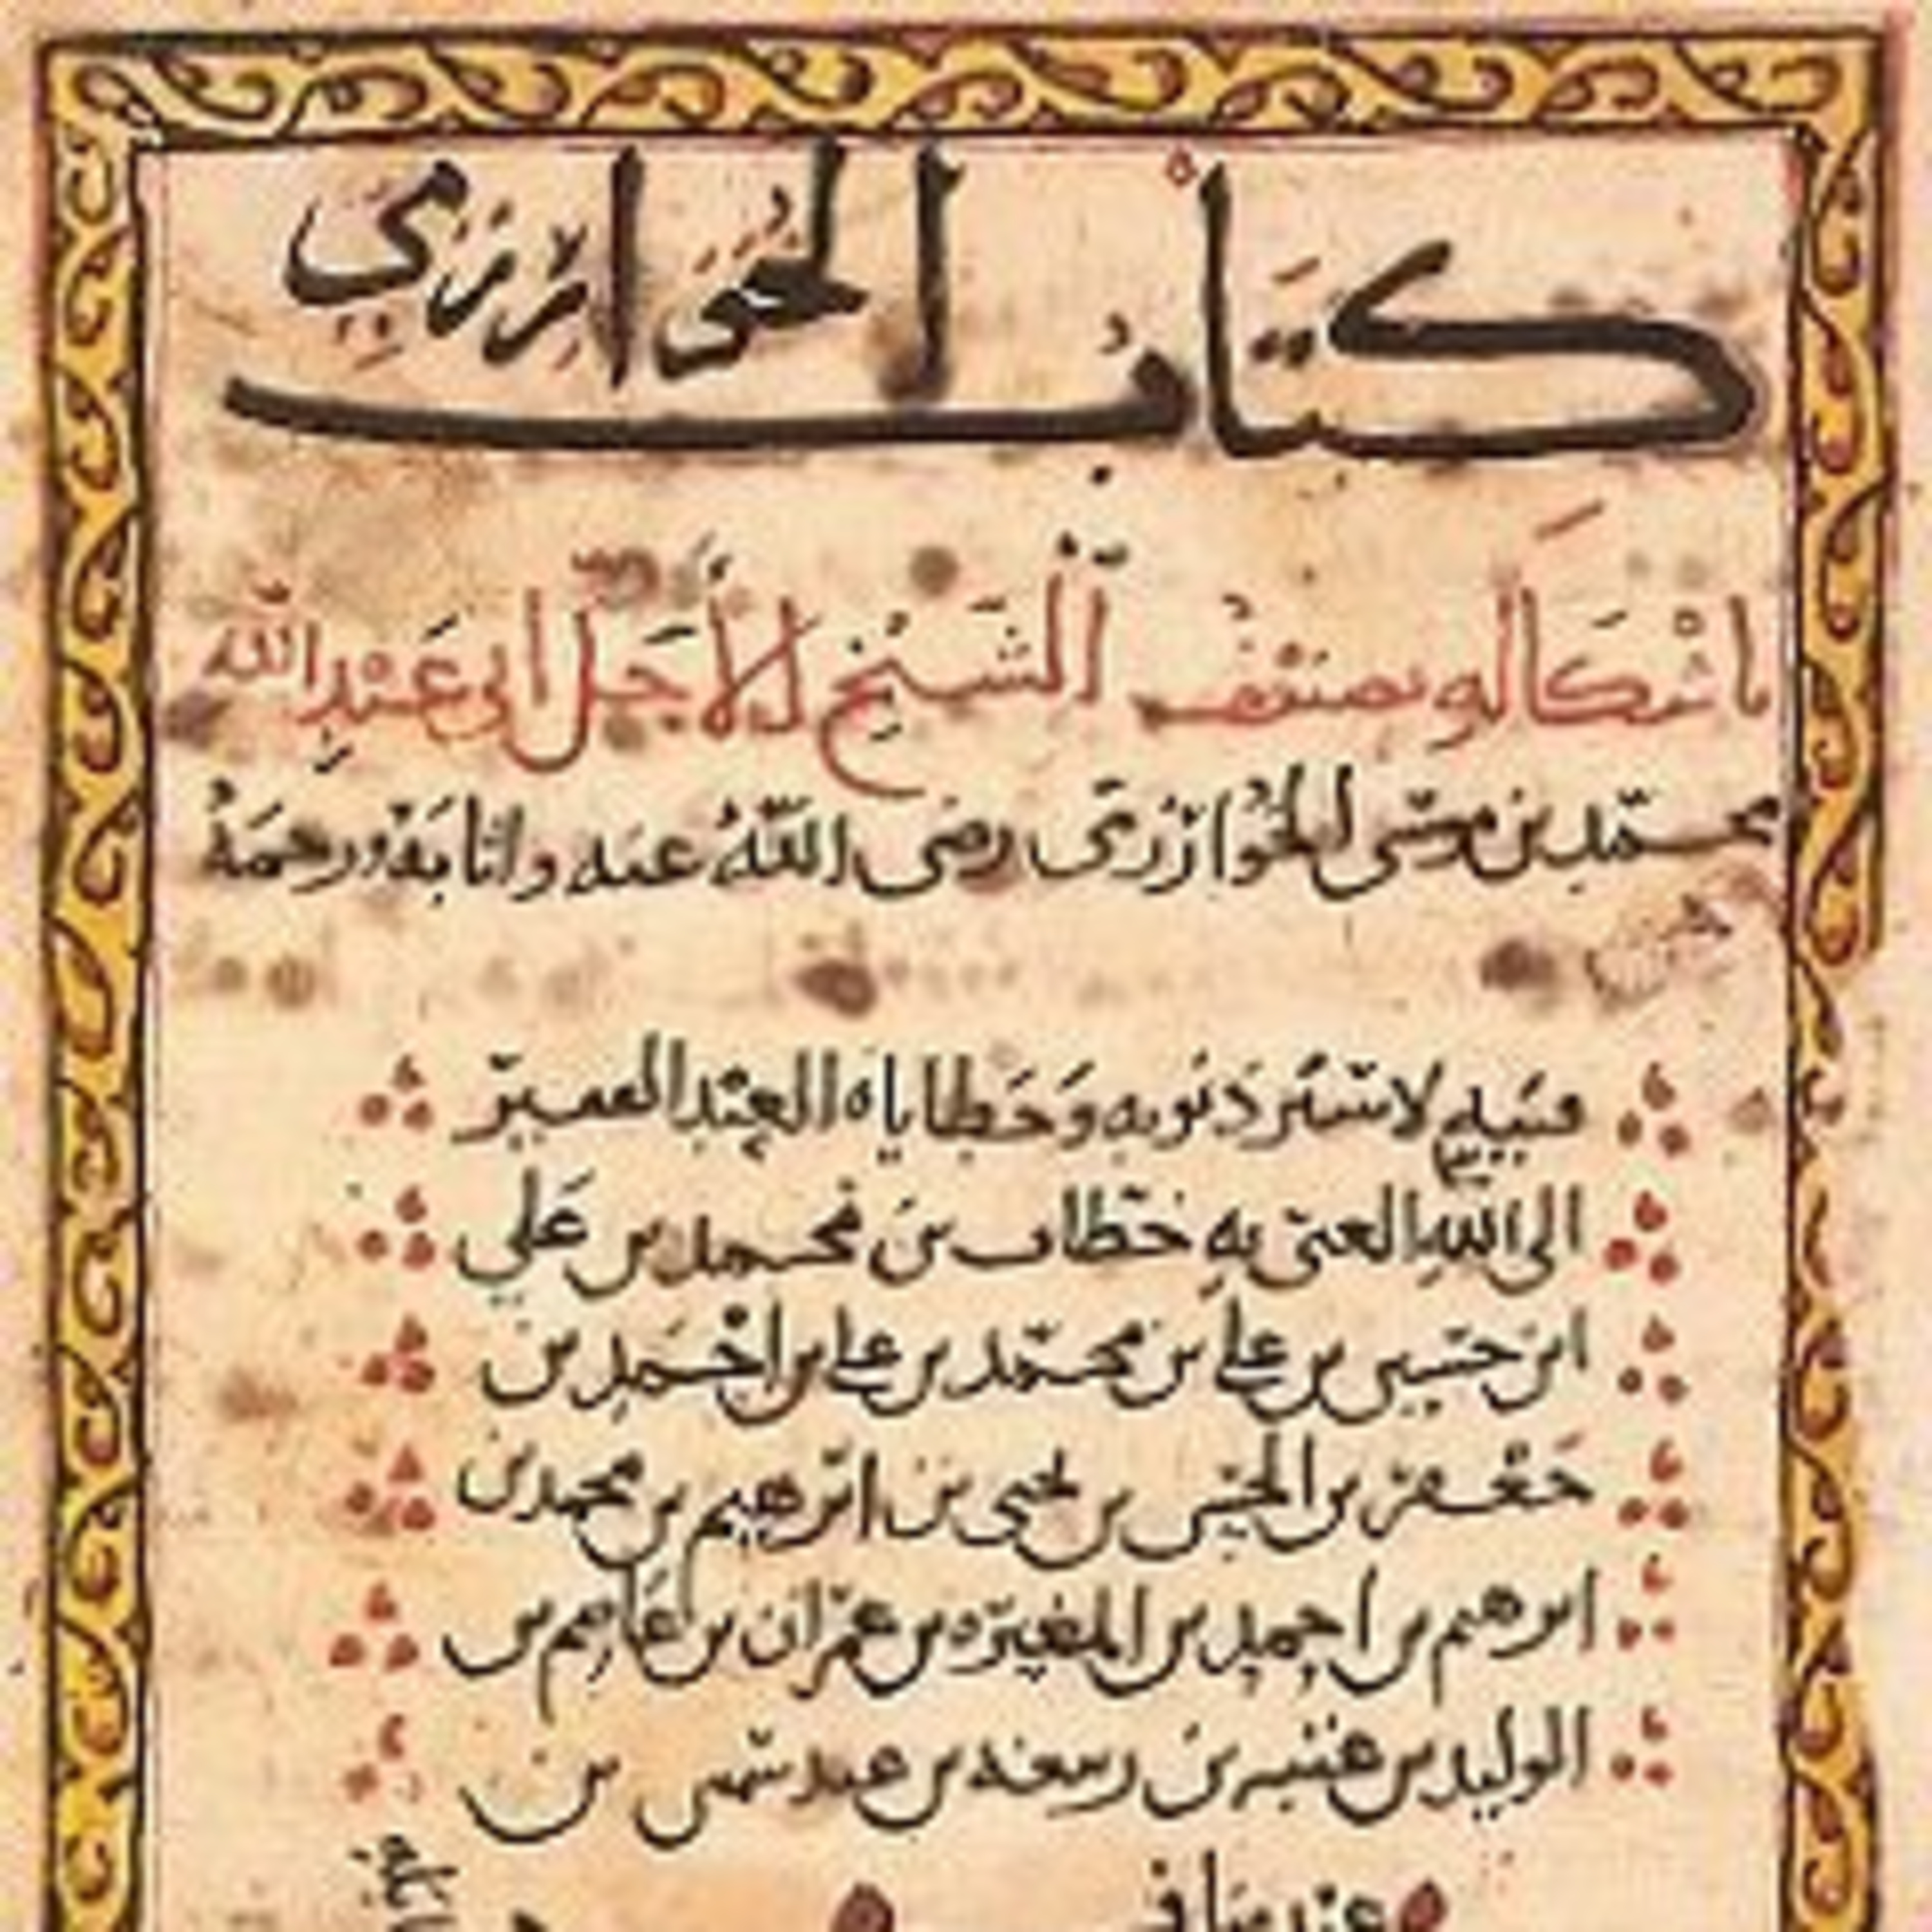 كتاب الخوارزمي
باشكاله تصنيف الشيخ الأجل ابي عبد الله
محمد بن موسى الخوارزمي رضي الله عنه واثابه ورحمة
لاستر ذنوبه وخطاياه العبد الفقير
الى الله الغني به خطاب بن محمد بن علي
ابن حسين بن علي بن محمد بن علي بن احمد بن
جعفر بن الحسين بن يحيى بن ابرهيم بن محمد بن
ابرهيم بن احمد بن المغيره بن عمران بن عاصم بن
الوليد بن عتبه بن ربيعه بن عبد شمس بن
عبد مناف